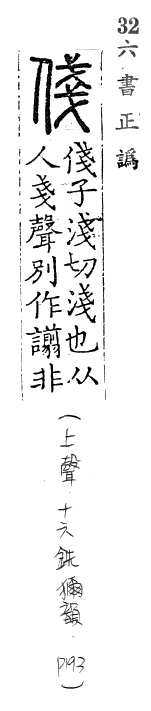 32六書正譌
俴
俴子淺切淺也从
人戔聲別作謭非
(上聲 十六銑獮韻 P193)